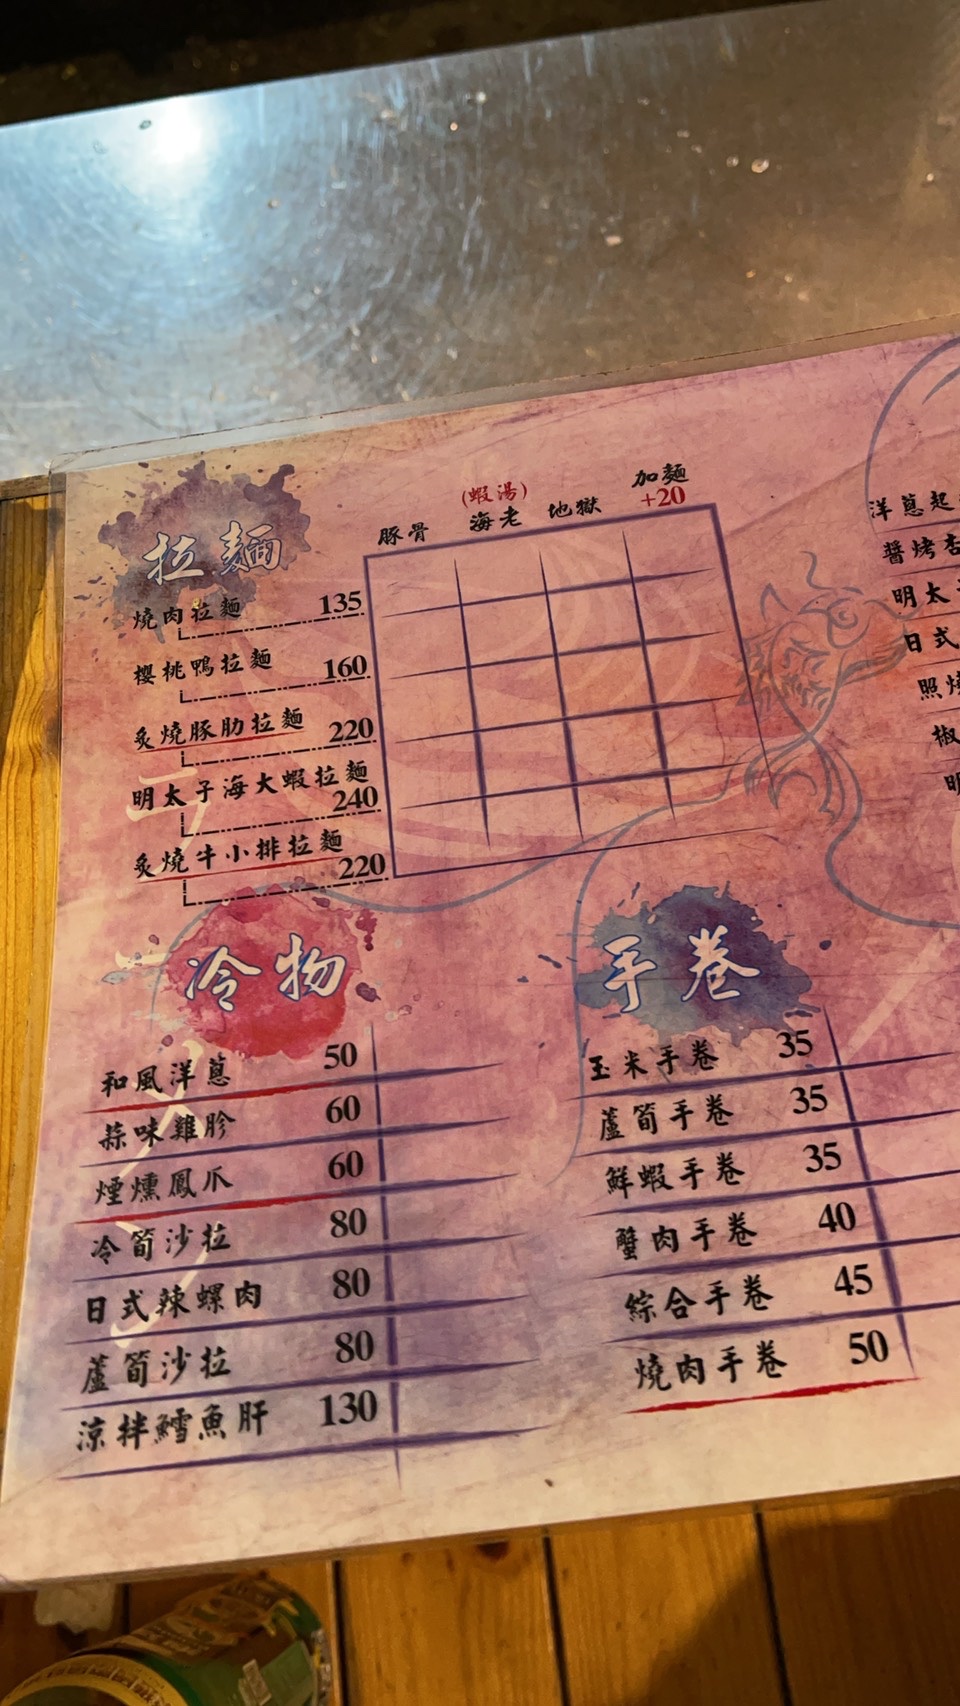 拉麵
豚骨
(蝦湯)
海老
地獄
加麵
+20
燒肉拉麵 135
櫻桃鴨拉麵 160
炙燒豚肋拉麵 220
明太子海大蝦拉麵 240
炙燒牛小排拉麵 220
冷物
和風洋蔥 50
蒜味雞胗 60
煙燻鳳爪 60
冷筍沙拉 80
日式辣螺肉 80
蘆筍沙拉 80
涼拌鱈魚肝 130
手卷
玉米手卷 35
蘆筍手卷 35
鮮蝦手卷 35
蟹肉手卷 40
綜合手卷 45
燒肉手卷 50
洋蔥起
醬烤杏
明太
日式
照燒
椒
明